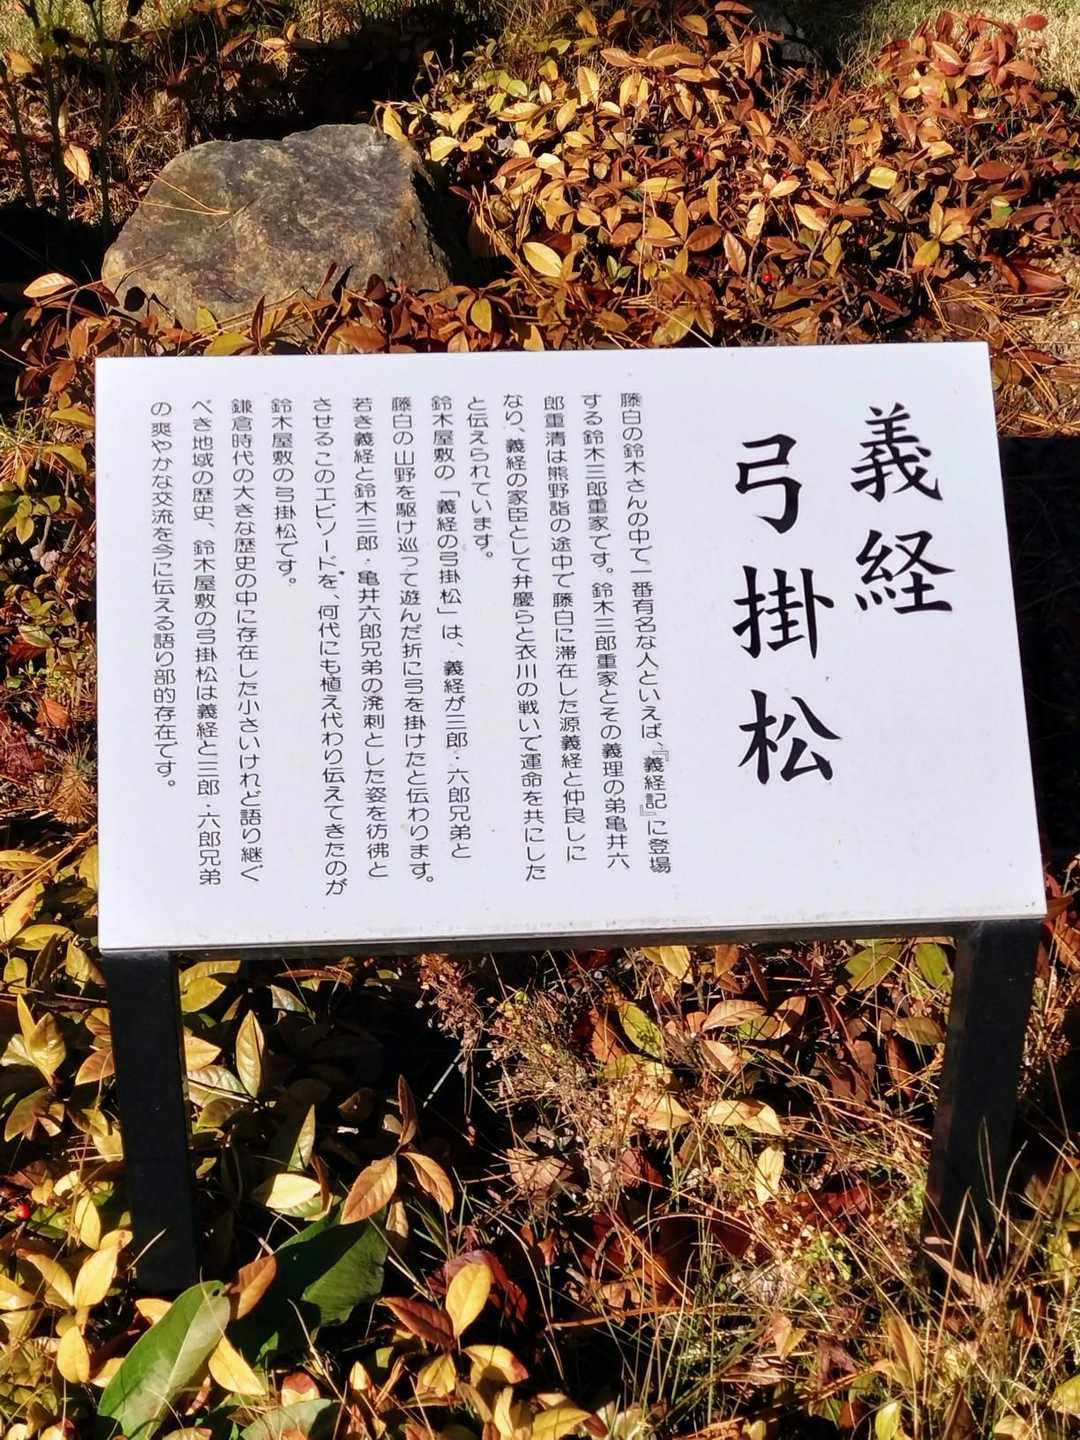 義経
弓掛松
藤白の鈴木さんの中で一番有名な人といえば、『義経記』に登場
する鈴木三郎重家です。鈴木三郎重家とその義理の弟亀井六
郎重清は熊野詣の途中で藤白に滞在した源義経と仲良しに
なり、義経の家臣として弁慶らと衣川の戦いで運命を共にした
と伝えられています。
鈴木屋敷の「義経の弓掛松」は、義経が三郎・六郎兄弟と
藤白の山野を駆け巡って遊んだ折に弓を掛けたと伝わります。
若き義経と鈴木三郎・亀井六郎兄弟の溌剌とした姿を彷彿と
させるこのエピソードを、何代にも植え代わり伝えてきたのが
鈴木屋敷の弓掛松です。
鎌倉時代の大きな歴史の中に存在した小さいけれど語り継ぐ
べき地域の歴史、鈴木屋敷の弓掛松は義経と三郎・六郎兄弟
の爽やかな交流を今に伝える語り部的存在です。